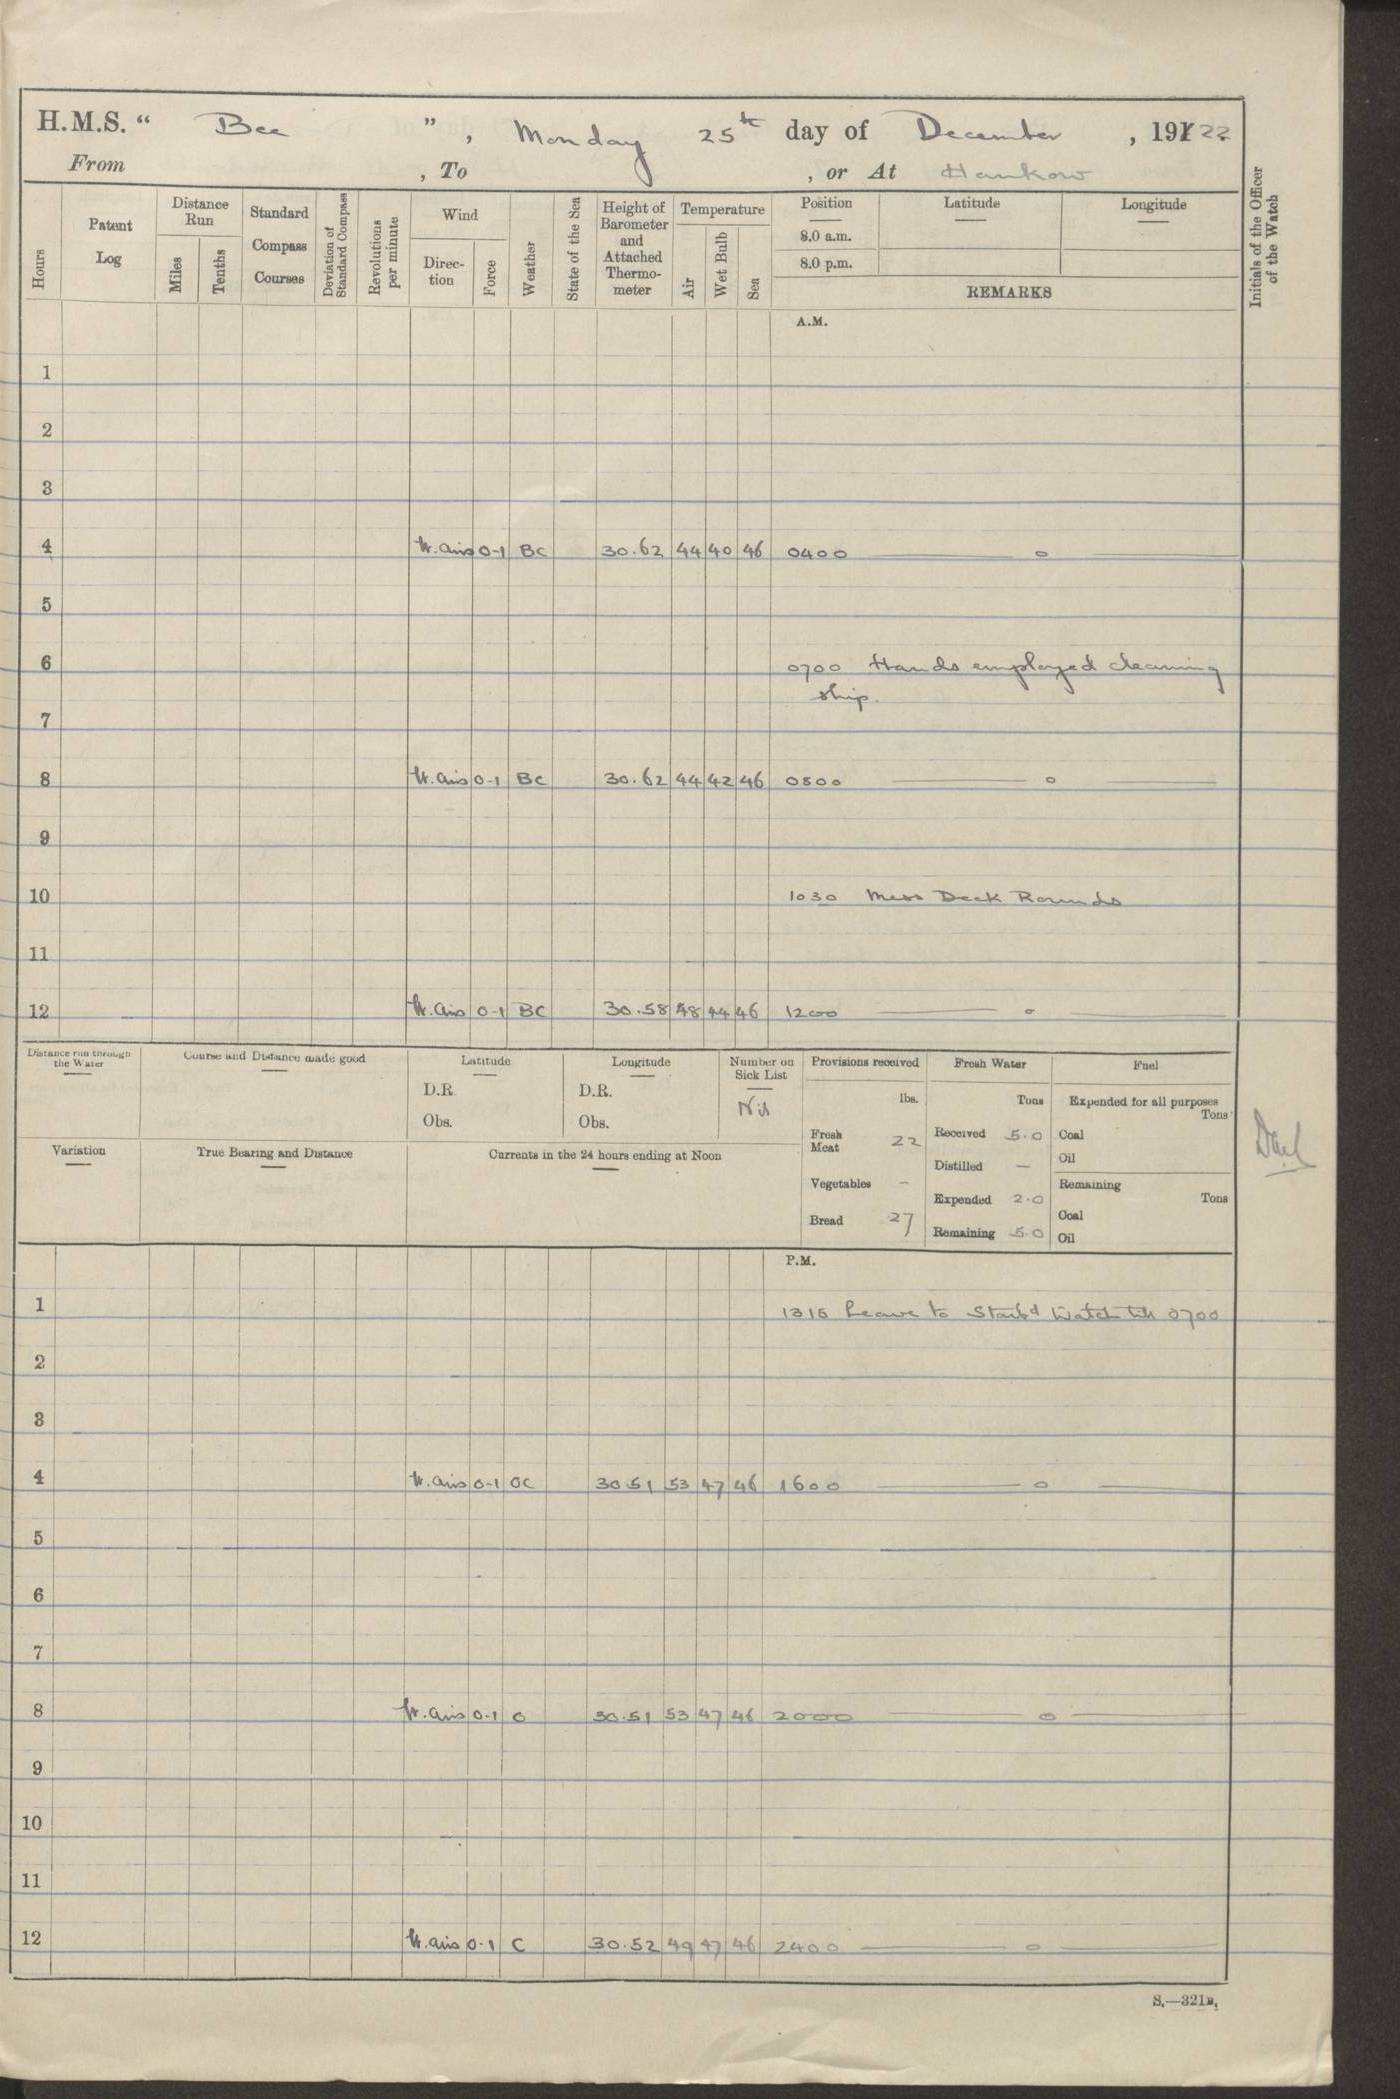 H.M.S. " Bee ", Monday 25th day of December, 19122
From , To , or At Hankow
Hours
Patent Log
Distance Run
Miles
Tenths
Standard Compass Courses
Deviation of Standard Compass
Revolutions per minute
Wind
Direction
Force
Weather
State of the Sea
Height of Barometer and Attached Thermometer
Temperature
Air
Wet Bulb
Sea
Position
8.0 a.m.
8.0 p.m.
Latitude
Longitude
REMARKS
Initials of the Officer of the Watch
A.M.
1
2
3
4 Lt. airs 0-1 BC 30.62 44 40 46 0400 — o —
5
6 0700 Hands employed cleaning
ship.
7
8 Lt. airs 0-1 BC 30.62 44 42 46 0800 — o —
9
10 1030 Mess Deck Rounds
11
12 Lt. airs 0-1 BC 30.58 48 44 46 1200 — o —
Distance run through the Water
Course and Distance made good
Latitude
D.R.
Obs.
Longitude
D.R.
Obs.
Number on Sick List
Nil
Variation
True Bearing and Distance
Currents in the 24 hours ending at Noon
Provisions received
lbs.
Fresh Meat 22
Vegetables –
Bread 27
Fresh Water
Tons
Received 5.0
Distilled —
Expended 2.0
Remaining 5.0
Fuel
Expended for all purposes
Tons
Coal
Oil
Remaining
Tons
Coal
Oil
P.M.
1 1315 Leave to Starbd Watch till 0700
2
3
4 Lt. airs 0-1 OC 30.51 53 47 46 1600 — o —
5
6
7
8 Lt. airs 0-1 O 30.51 53 47 46 2000 — o —
9
10
11
12 Lt. airs 0-1 C 30.52 49 47 46 2400 — o —
S.—321B.